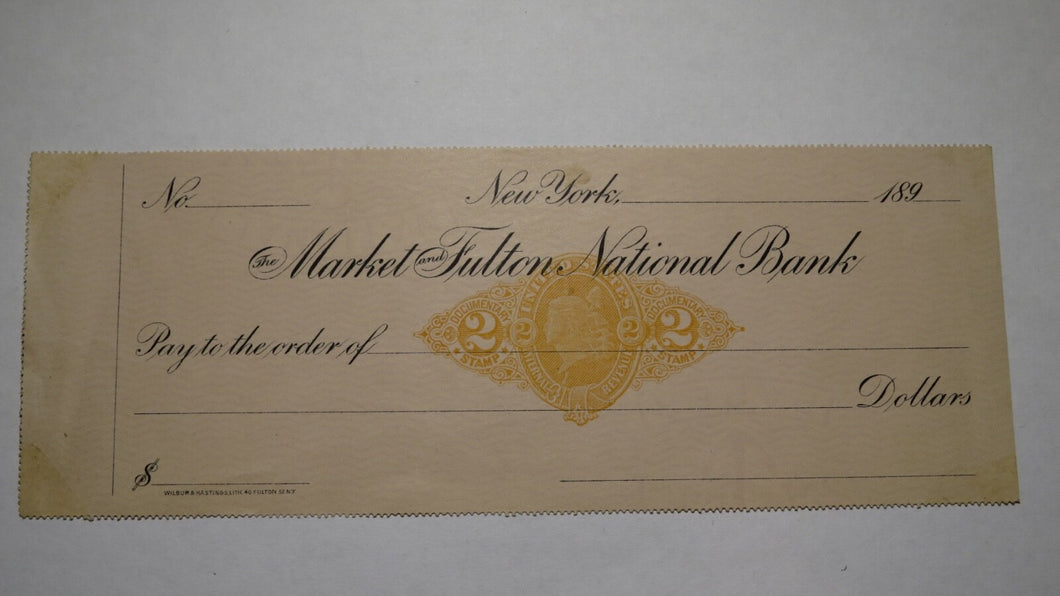 No. New York, 189
The Market and Fulton National Bank
UNITED STATES
DOCUMENTARY 2 STAMP 2 2 DOCUMENTARY 2 STAMP
INTERNAL REVENUE
Pay to the order of
Dollars
$
WILBUR & HASTINGS, LITH. 40 FULTON ST. N.Y.